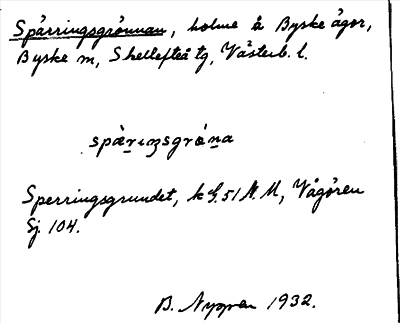 Spårringsgrönnan, holme å Byske ågor,
Byske sn, Skellefteå tg, Västerb. l.
spä̀rıŋsgrö̀na
Sperringsgrundet, k S. 51 N. M, Vågören
Sj. 104.
B. Nyman 1932.